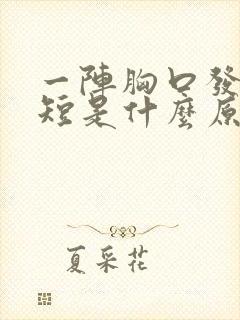 一陣胸口發
短是什麼原
夏采花